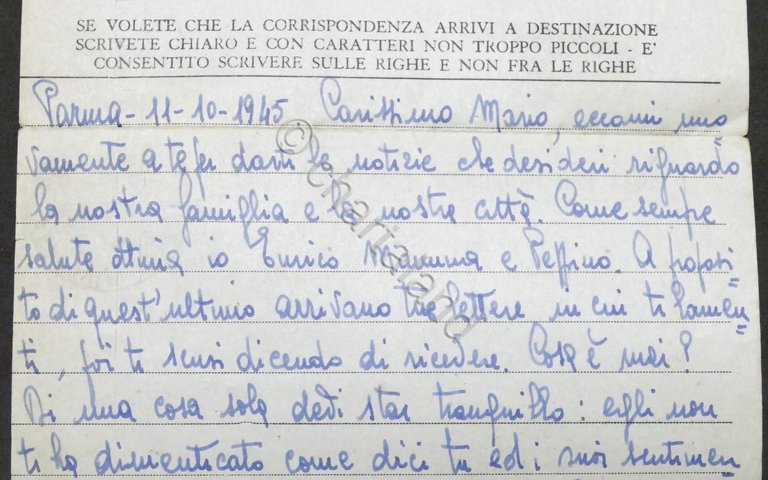 SE VOLETE CHE LA CORRISPONDENZA ARRIVI A DESTINAZIONE
SCRIVETE CHIARO E CON CARATTERI NON TROPPO PICCOLI - E'
CONSENTITO SCRIVERE SULLE RIGHE E NON FRA LE RIGHE
Parma - 11-10-1945. Carissimo Mario, eccomi nuo=
vamente a te per darti le notizie che desideri riguardo
la nostra famiglia e la nostra città. Come sempre
salute ottima io Enrico Mamma e Peppino. A proposi=
to di quest'ultimo arrivano tue lettere in cui ti lamen=
ti, poi ti sensi dicendo di ricevere. Cosa è mai?
Di una cosa sola devi star tranquillo: egli non
ti ha dimenticato come dici tu ed i suoi sentimen=
© chartaland